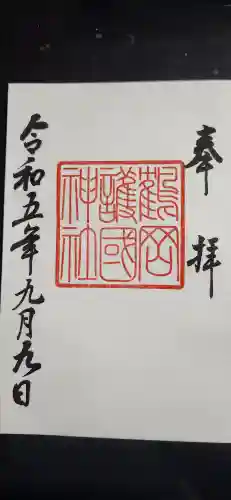 奉拝
鶴岡
護國
神社
令和五年九月九日